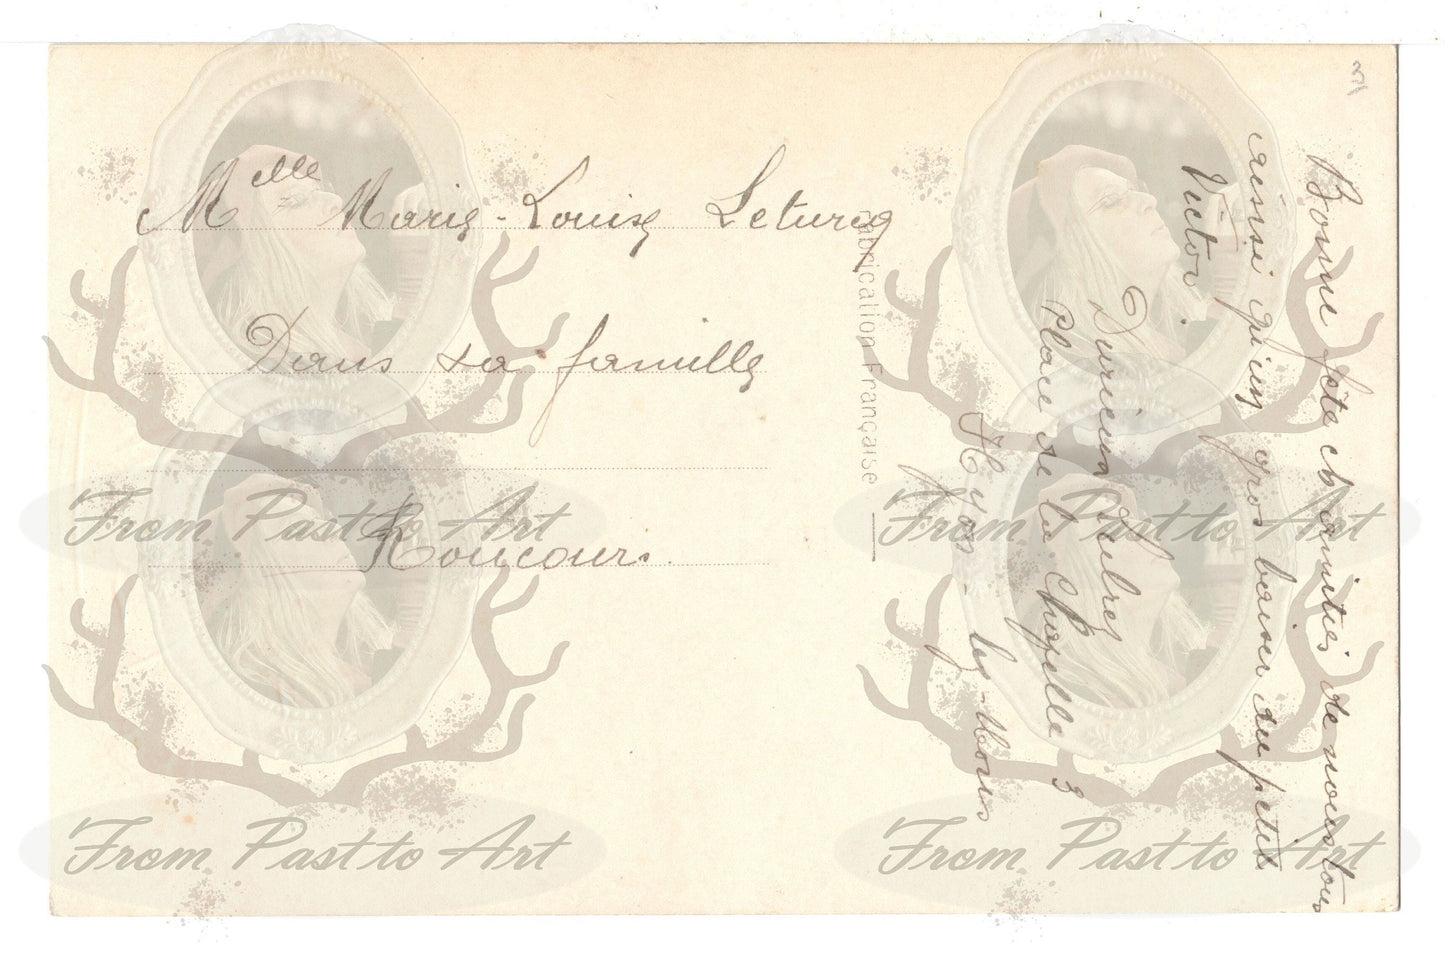 Melle Marie-Louise Leturcq
Dans sa famille
Roucour.
Fabrication Française
3
Bonne fête et amitiés de nous tous
ainsi qu'un gros baiser du petit
Victor.
Durieux
Place de la Chapelle 3
Hyon-les-Mons
From Past to Art
From Past to Art
From Past to Art
From Past to Art